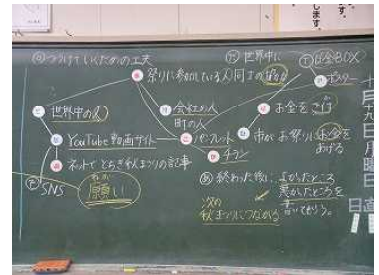 つづけていくための工夫
祭りに参加している人同士の
世界中に
募金BOX
ポスター
世界中の人
会社の人
町の人
お金を
YouTube動画サイト
パンフレット
市がお祭りにお金を
あげる
チラシ
ネットでとちぎ秋まつりの記事
SNS
願い
終わった後に
よかったところ
悪かったところを
書いてもらう。
次の
秋まつりにつながる
十月十九日月曜日
日直
します。